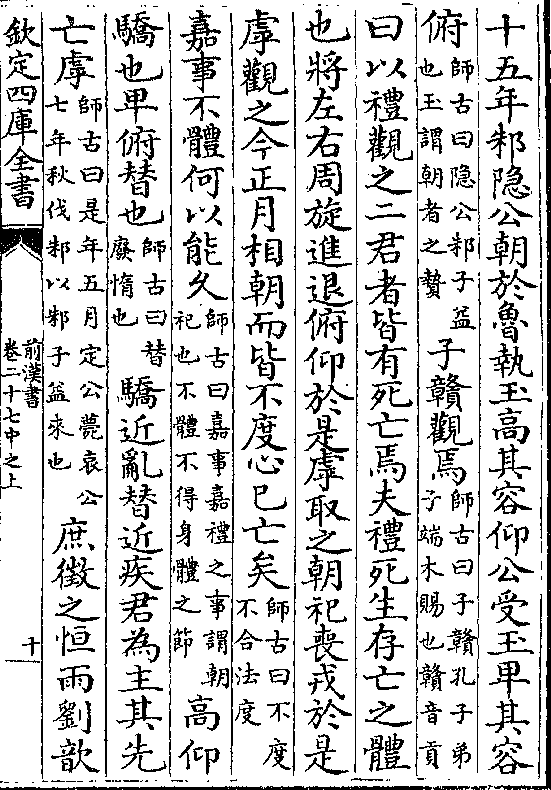 十五年邾隐公朝於魯執玉高其容仰公受玉卑其容
俯師古曰隐公邾子益也玉謂朝者之贄子贛觀焉師古曰子贛孔子弟子端木賜也贛音貢
曰以禮觀之二君者皆有死亡焉夫禮死生存亡之體
也將左右周旋進退俯仰於是虖取之朝祀喪戎於是
虖觀之今正月相朝而皆不度心已亡矣師古曰不度不合法度
嘉事不體何以能久師古曰嘉事嘉禮之事謂朝祀也不體不得身體之節高仰
驕也卑俯替也師古曰替廢惰也驕近亂替近疾君為主其先
亡虖師古曰是年五月定公薨哀公七年秋伐邾以邾子益來也庶徵之恒雨劉歆
欽定四庫全書
前漢書
卷二十七中之上
十